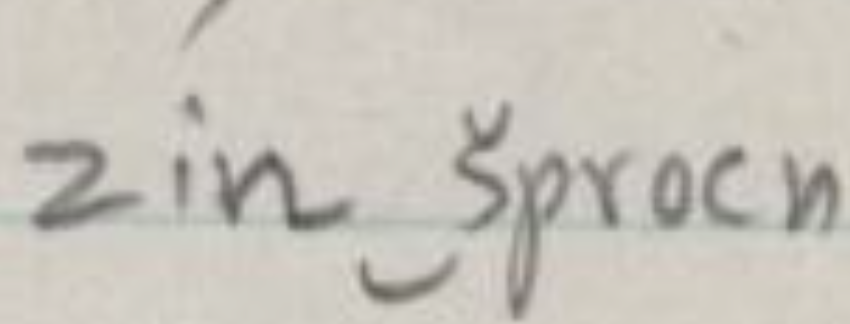 zin‿šprocn